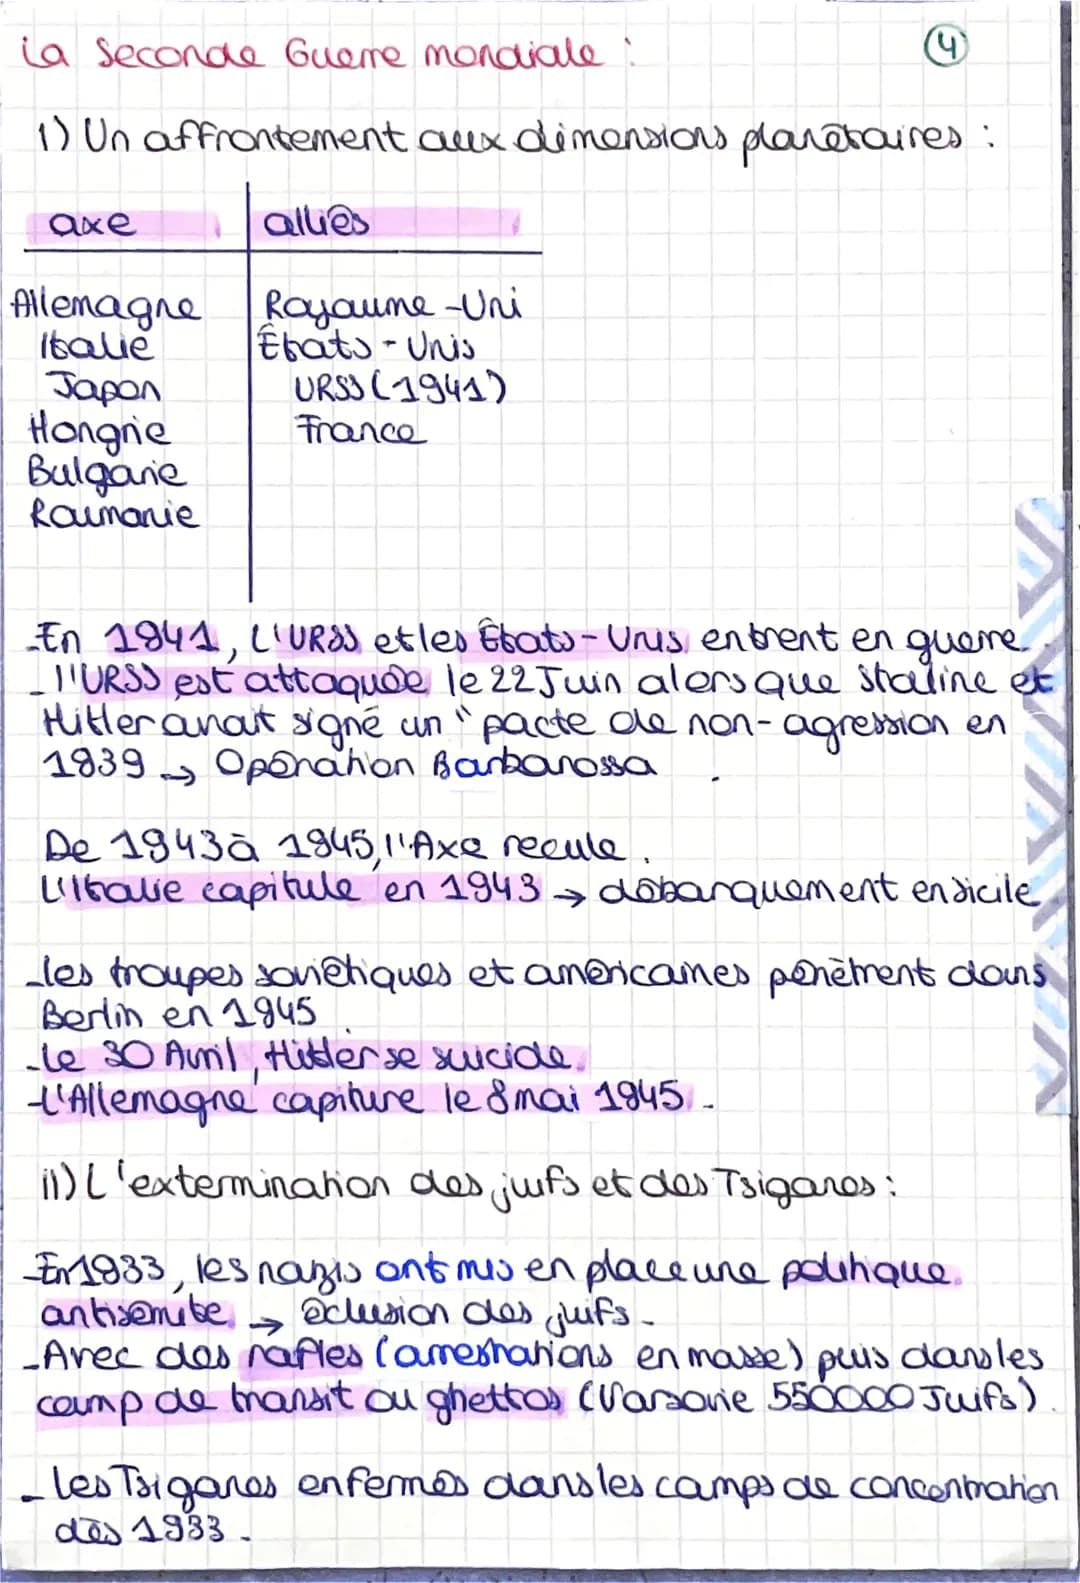 La Seconde Guerre mondiale :
4
1) Un affrontement aux dimensions planétaires :
axe
alliés
Allemagne
Royaume-Uni
Italie
États-Unis
Japon
URSS (1941)
Hongrie
France
Bulgarie
Roumanie
-En 1941, L'URSS et les États-Unis entrent en guerre.
- l'URSS est attaquée le 22 Juin alors que Staline et
Hitler avait signé un "pacte de non-agression en
1939 → Opération Barbarossa
De 1943 à 1945, l'Axe recule.
L'Italie capitule en 1943 → débarquement en Sicile
-les troupes soviétiques et américaines pénètrent dans
Berlin en 1945
-Le 30 Avril, Hitler se suicide.
-L'Allemagne capiture le 8 mai 1945.
II) L'extermination des juifs et des Tsiganes :
-En 1933, les nazis ont mis en place une politique
antisémite. → éclusion des juifs.
-Avec des rafles (arrestrations en masse) puis dans les
camp de transit ou ghettos (Varsovie 550000 Juifs).
- les Tsiganes enfermés dans les camps de concentration
dès 1933.